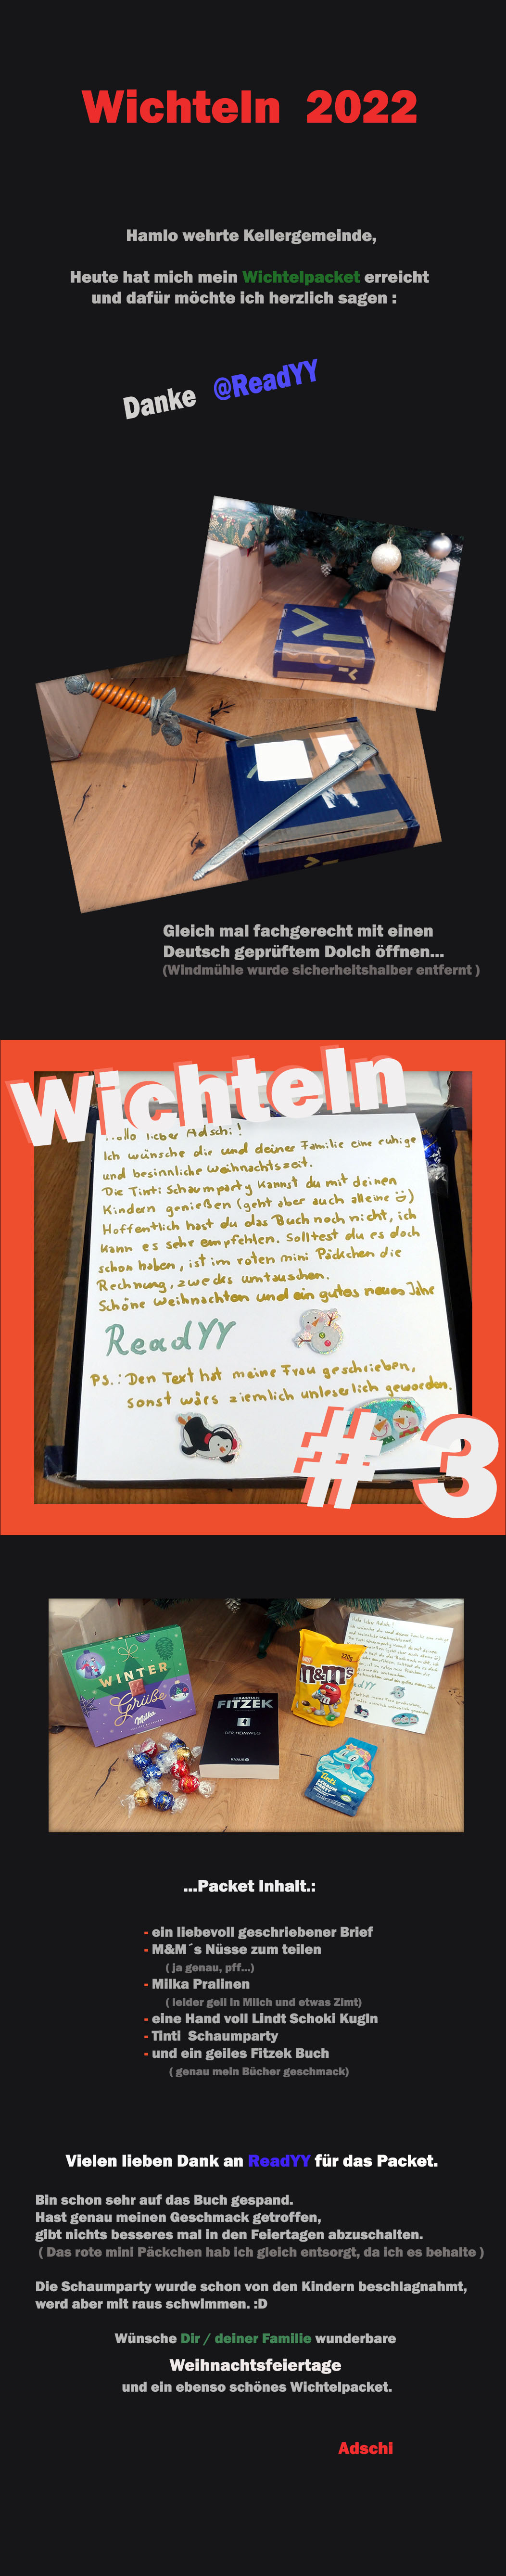 Wichteln 2022
Hamlo wehrte Kellergemeinde,
Heute hat mich mein Wichtelpacket erreicht
und dafür möchte ich herzlich sagen :
Danke @ReadYY
Gleich mal fachgerecht mit einen
Deutsch geprüftem Dolch öffnen...
(Windmühle wurde sicherheitshalber entfernt )
Wichteln
Hallo lieber Adschi!
Ich wünsche dir und deiner Familie eine ruhige
und besinnliche Weihnachtszeit.
Die Tinti Schaumparty kannst du mit deinen
Kindern genießen (geht aber auch alleine :))
Hoffentlich hast du das Buch noch nicht, ich
kann es sehr empfehlen. Solltest du es doch
schon haben, ist im roten mini Päckchen die
Rechnung, zwecks umtauschen.
Schöne Weihnachten und ein gutes neues Jahr
ReadYY
PS.: Den Text hat meine Frau geschrieben,
sonst wärs ziemlich unleserlich geworden.
# 3
WINTER
Grüße
Milka
SEBASTIAN
FITZEK
DER HEIMWEG
KNAUR
m&m's
Tinti
...Packet Inhalt.:
- ein liebevoll geschriebener Brief
- M&M´s Nüsse zum teilen
( ja genau, pff...)
- Milka Pralinen
( leider geil in Milch und etwas Zimt)
- eine Hand voll Lindt Schoki Kugln
- Tinti Schaumparty
- und ein geiles Fitzek Buch
( genau mein Bücher geschmack)
Vielen lieben Dank an ReadYY für das Packet.
Bin schon sehr auf das Buch gespand.
Hast genau meinen Geschmack getroffen,
gibt nichts besseres mal in den Feiertagen abzuschalten.
( Das rote mini Päckchen hab ich gleich entsorgt, da ich es behalte )
Die Schaumparty wurde schon von den Kindern beschlagnahmt,
werd aber mit raus schwimmen. :D
Wünsche Dir / deiner Familie wunderbare
Weihnachtsfeiertage
und ein ebenso schönes Wichtelpacket.
Adschi